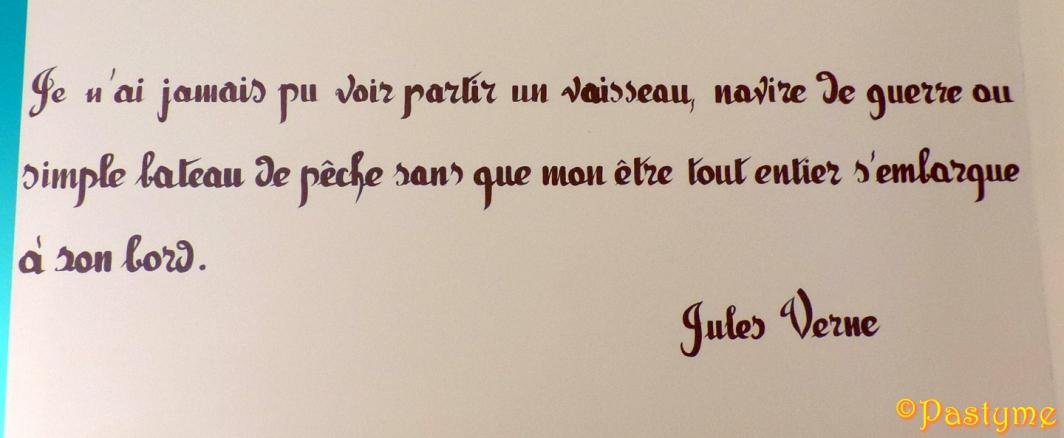 Je n'ai jamais pu voir partir un vaisseau, navire de guerre ou
simple bateau de pêche sans que mon être tout entier s'embarque
à son bord.
Jules Verne
©Pastyme